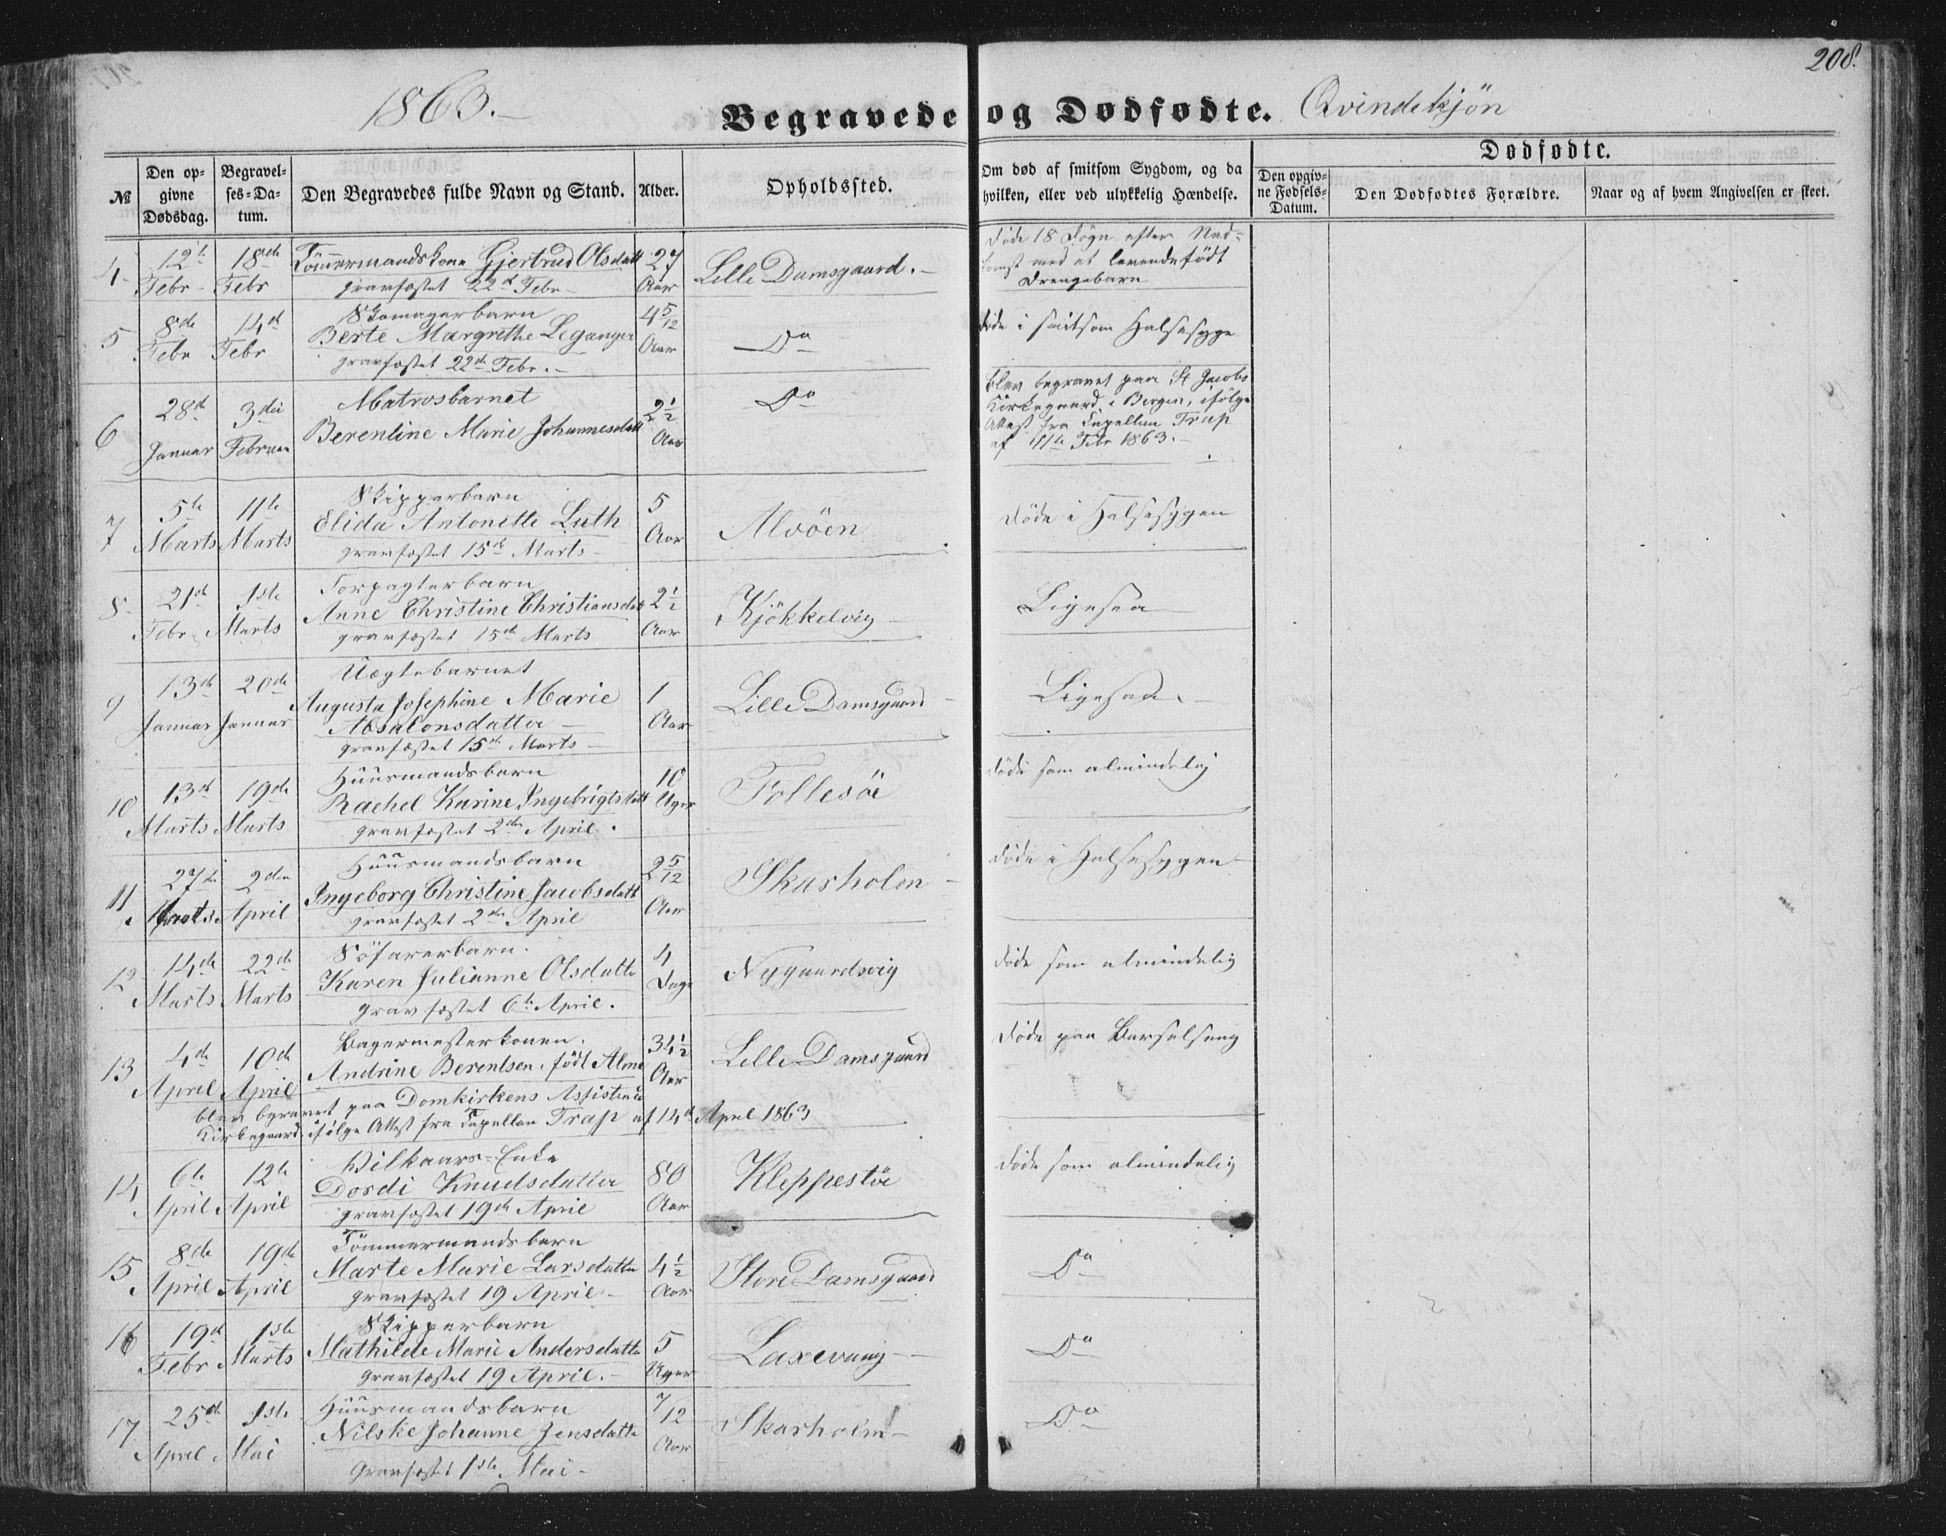 208.
1863.—
Begravede og Dødfødte. Qvindekjön
№
Den opgivne Dødsdag.
Begravelses-Datum.
Den Begravedes fulde Navn og Stand.
Alder.
Opholdssted.
Om død af smitsom Sygdom, og da hvilken, eller ved ulykkelig Hændelse.
Dødfødte.
Den opgivne Fødsels-Datum.
Den Dødfødtes Forældre.
Naar og af hvem Angivelsen er skeet.
4 12te Febr 18de Febr Tömmermandskone Gjertrud Olsdatt 27 Aar Lille Damsgaard.
gravfæstet 22de Febr
Døde 18 Døgn efter Nedkomst med et levendefödt Drengebarn
5 8de Febr 14de Febr Skomagerbarn
Berte Margrethe Leganger 4 5/12 Aar Do
gravfæstet 22de Febr.
döde i smitsom Halssyge
6 28de Januar 3die Februar Matrosbarnet
Berentine Marie Johannesdatt 2½ Aar Do
blev begravet paa St Jacobs Kirkegaard i Bergen, ifølge Attest fra Capellan Trap af 11te Febr 1863.
7 5te Marts 11te Marts Skipperbarn
Elida Antonette Luth 5 Aar Alvöen
gravfæstet 15de Marts
döde i Halssygen
8 21de Febr 1ste Marts Forpagterbarn
Anne Christine Christiansdatt 2½ Aar Kjökkelvig
gravfæstet 15de Marts
Ligesaa
9 13de Januar 20de Januar Uægtebarnet
Augusta Josephine Marie Absalonsdatter 1 Aar Lille Damsgaard
gravfæstet 15de Marts
Ligesaa
10 13de Marts 19de Marts Huusmandsbarn
Rachel Karine Ingebrigtsdatt 10 Uger Follesöe
gravfæstet 2den April.
döde som almindelig
11 27de Marts 2den April Huusmandsbarn
Ingeborg Christine Jacobsdatt 2 5/12 Aar Skarholen
gravfæstet 2den April
döde i Halssygen
12 14de Marts 22de Marts Söfarerbarn.
Karen Julianne Olsdatte 4 Dage Nygaardsvig
gravfæstet 6te April.
döde som almindelig
13 4de April 10de April Bagermesterkonen.
Andrine Berentsen, född Alme 34½ Aar Lille Damsgaard
blev begravet paa Domkirkens Assistents
Kirkegaard, ifølge Attest fra Capellan Trap af 14de April 1863
döde paa Barselseng
14 6te April 12te April Vilkaars-Enke
Dordi Knudsdatter 80 Aar Kleppestöe
gravfæstet 19de April
döde som almindelig
15 8de April 19de April Tömmermandsbarn
Marte Marie Larsdatte 4½ Aar Store Damsgaard
gravfæstet 19 April.
Do
16 19de Febr 1ste Marts Skipperbarn
Mathilde Marie Andersdatte 5 Uger Laxevaag
gravfæstet 19 April.
Do
17 25de April 1ste Mai Huusmandsbarn
Nilske Johanne Jensdatte 7/12 Aar Skarholm
gravfæstet 1ste Mai
Do